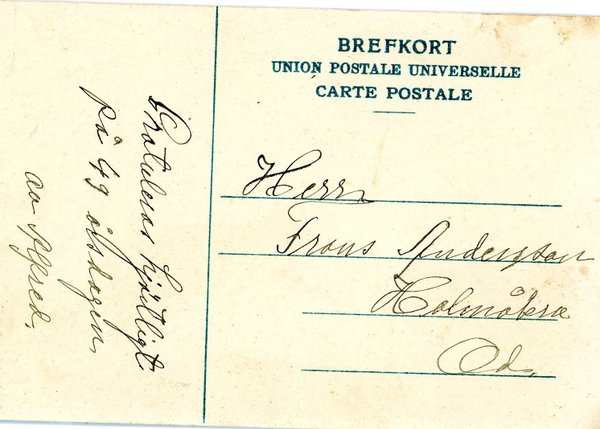 BREFKORT
UNION POSTALE UNIVERSELLE
CARTE POSTALE
Gratulerar hjärtligt
på 49 årsdagen,
av Alfred.
Herr
Frans Andersson
Holmåkra
Od.